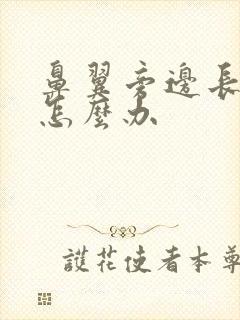 鼻翼旁邊長
怎麼办
護花使者本尊